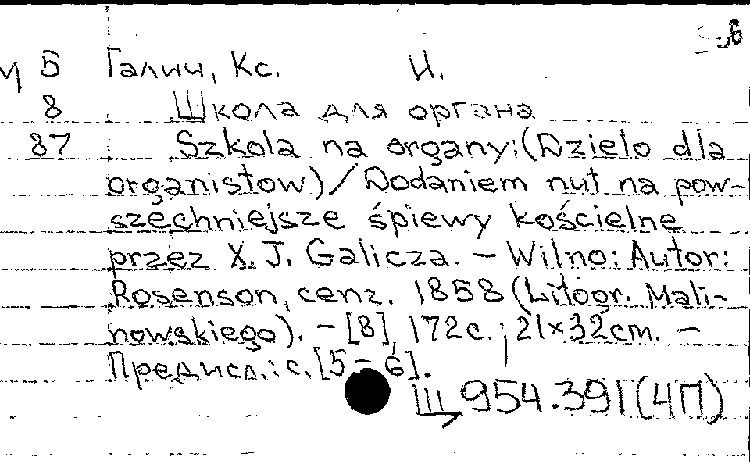 М Б Галич, Кс. И.
8 Школа для органа
87 Szkola na organy: (Dzielo dla
organistow) / Dodaniem nut na pow-
szechniejsze śpiewy kościelne
przez X. J. Galicza. – Wilno: Autor:
Rosenson, cenz. 1858 (Litogr. Mali-
nowskiego). – [8], 172 с.; 21×32 cm. –
Предисл.: с. [5–6].
Щ 954.391(4П)